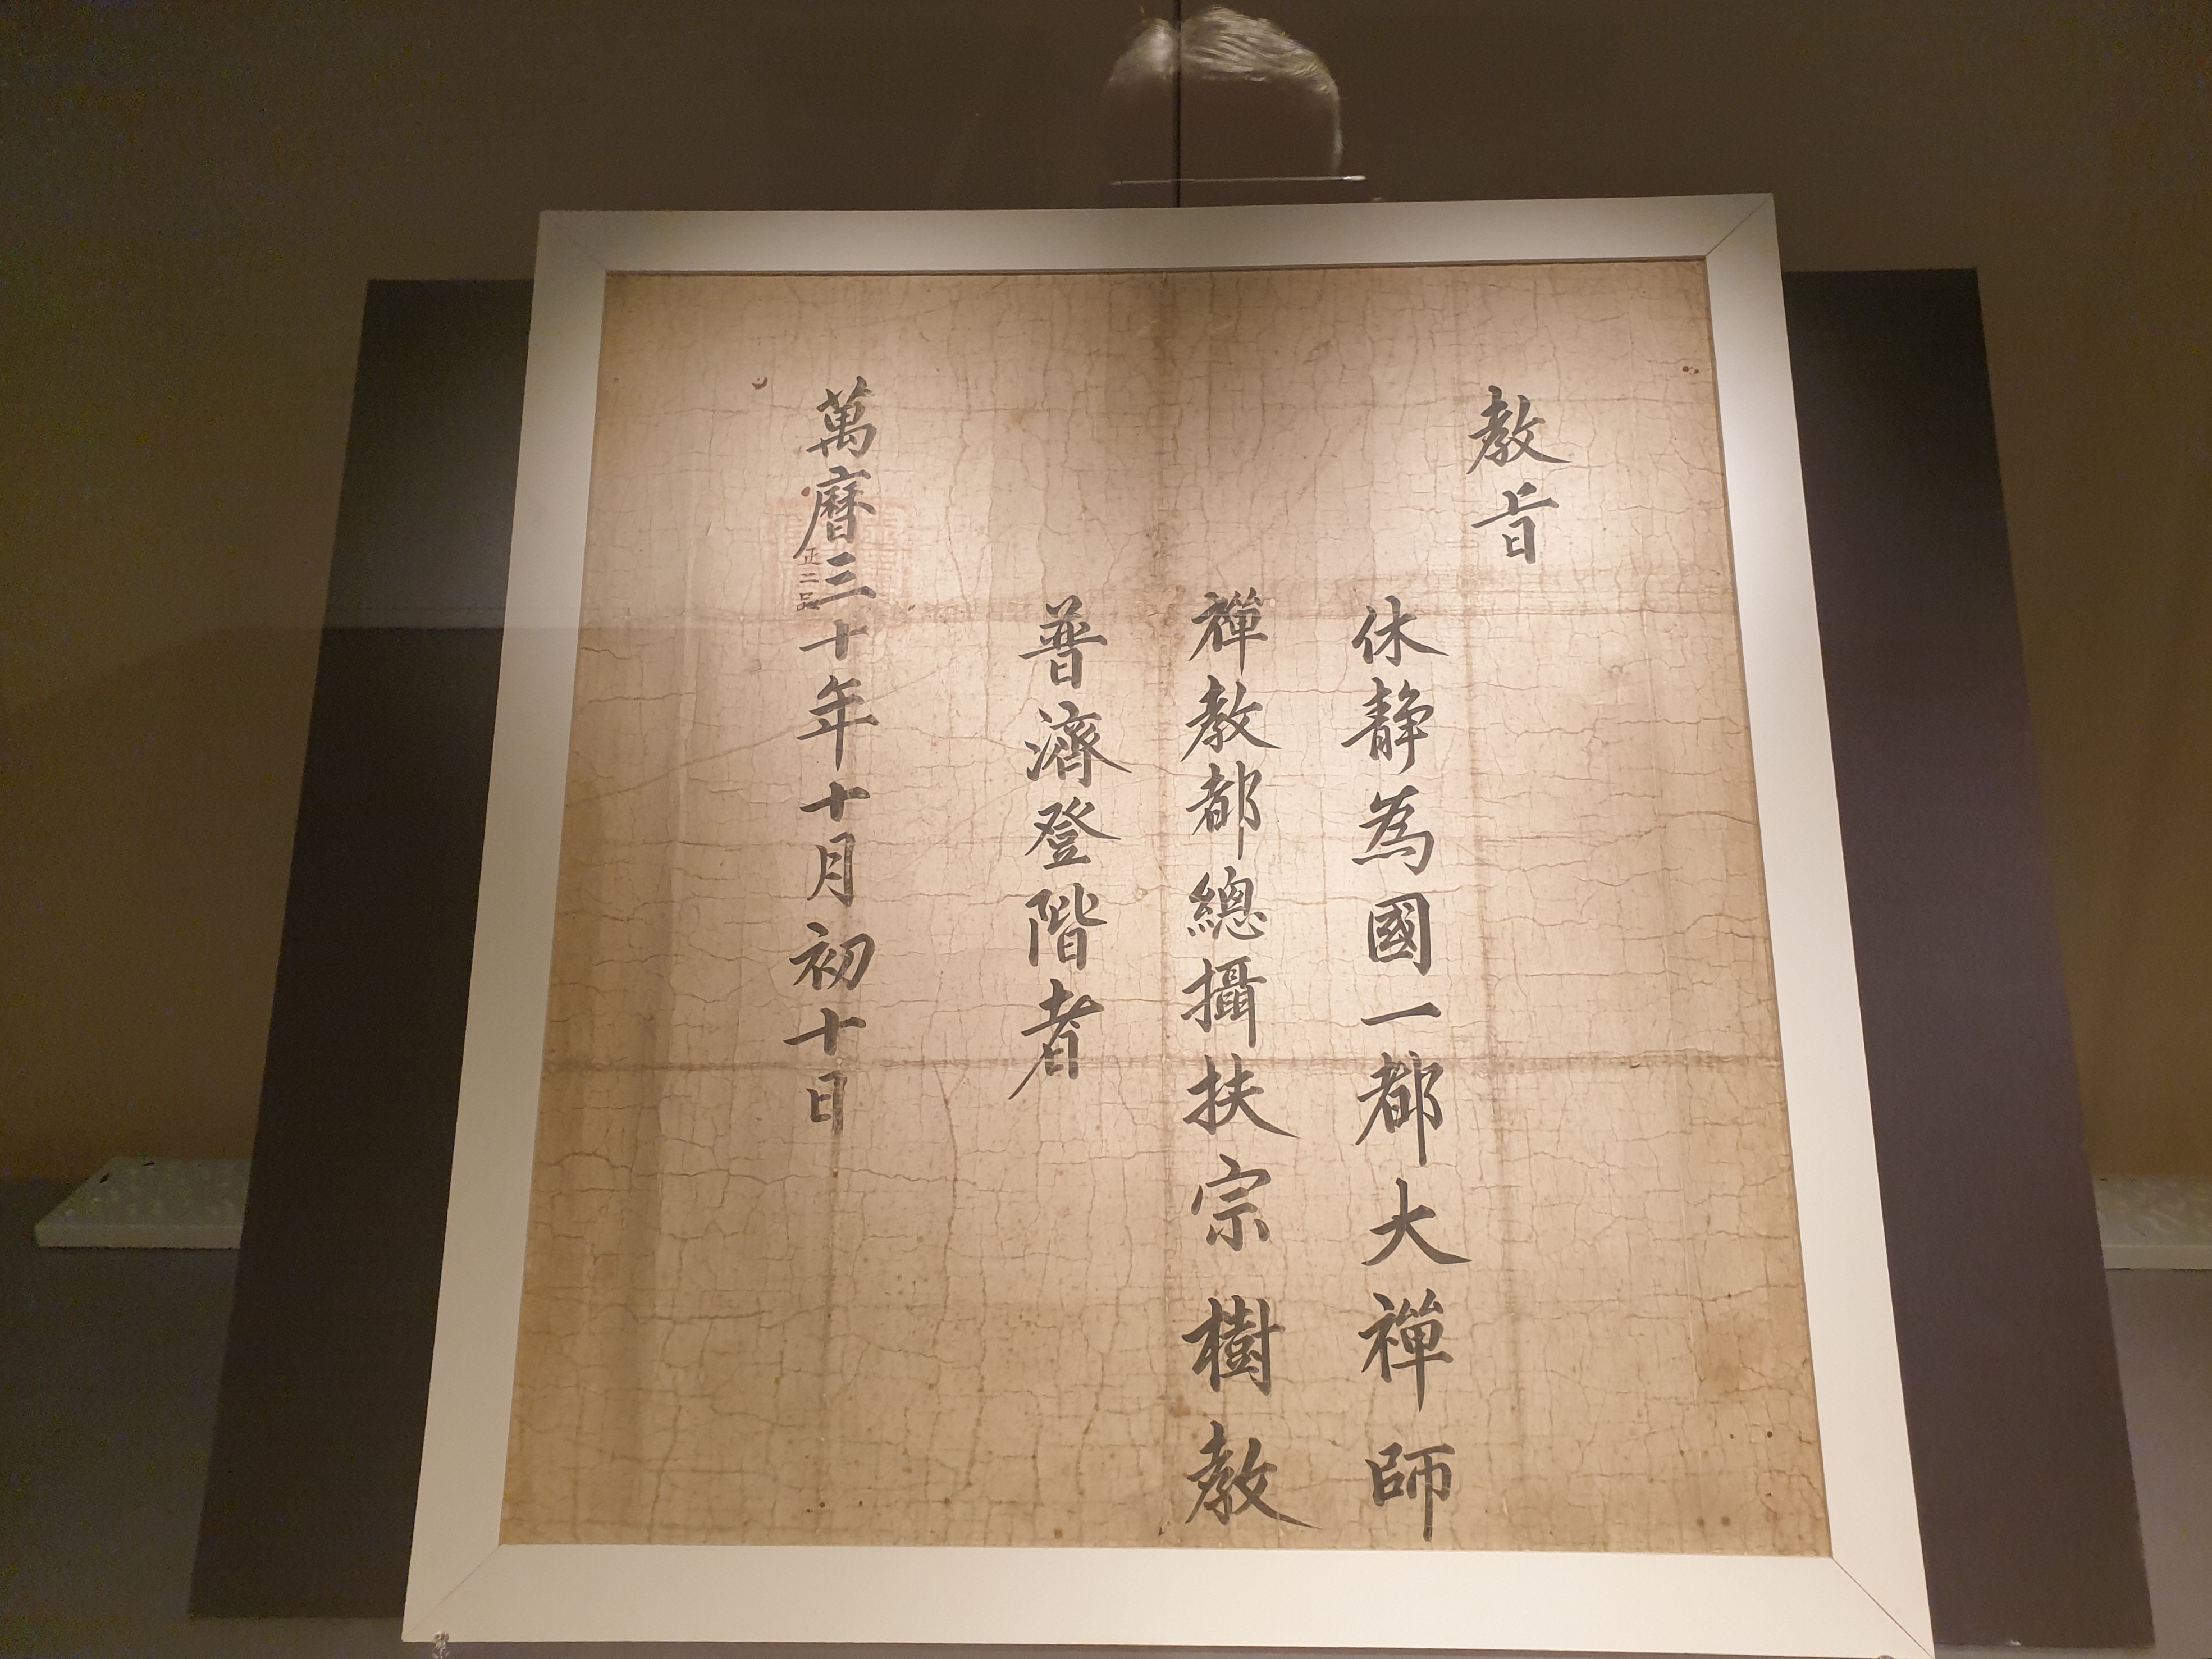 教旨
休静為國一都大禪師
禪教都總攝扶宗樹教
普濟登階者
萬曆三十年十月初十日
正二品